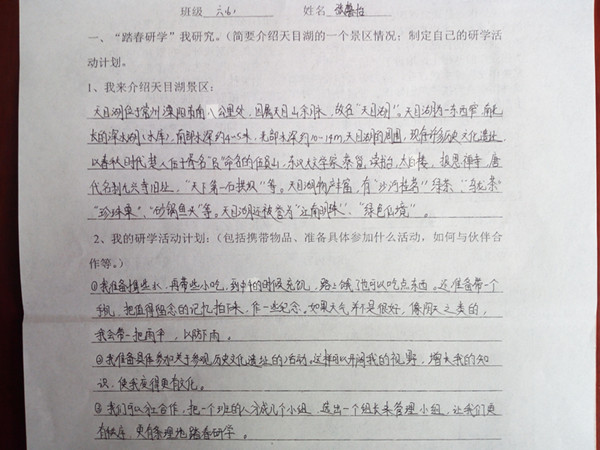 班级 六(1) 姓名
一、“踏春研学”我研究。(简要介绍天目湖的一个景区情况；制定自己的研学活
动计划。
1、我来介绍天目湖景区：
天目湖位于常州溧阳市南八公里处，因属天目山余脉，故名“天目湖”。天目湖为一东西窄，南北
长的深水湖(水库)，南部水深约4-5米，北部水深约10-14m天目湖的周围，现存许多历史文化遗址，
以春秋时代楚人伍子胥名“员”命名的伍员山，东汉大文学家蔡邕读书台，太白楼，报恩禅寺，唐
代名刹 寺旧址，“天下第一石拱坝”等。天目湖物产丰富，有“沙河桂茗”绿茶、“乌龙茶”
“珍珠栗”、“砂锅鱼头”等。天目湖还被誉为“江南明珠”、“绿色仙境”。
2、我的研学活动计划：(包括携带物品、准备具体参加什么活动，如何与伙伴合
作等。)
①我准备携些水，再带些小吃，到中午的时候充饥，路上饿了也可以吃点东西。还准备带一个
手机，把值得留念的记忆拍下来，作一些纪念。如果天气并不是很好，像阴天之类的，
我会带一把雨伞，以防下雨。
②我准备具体参加关于参观历史文化遗址的活动。这样可以开阔我的视野，增长我的知
识，使我变得更有文化。
③我们可以分工合作，把一个班的人分成几个小组，选出一个组长来管理小组，让我们更
有秩序，更有条理地踏春研学。